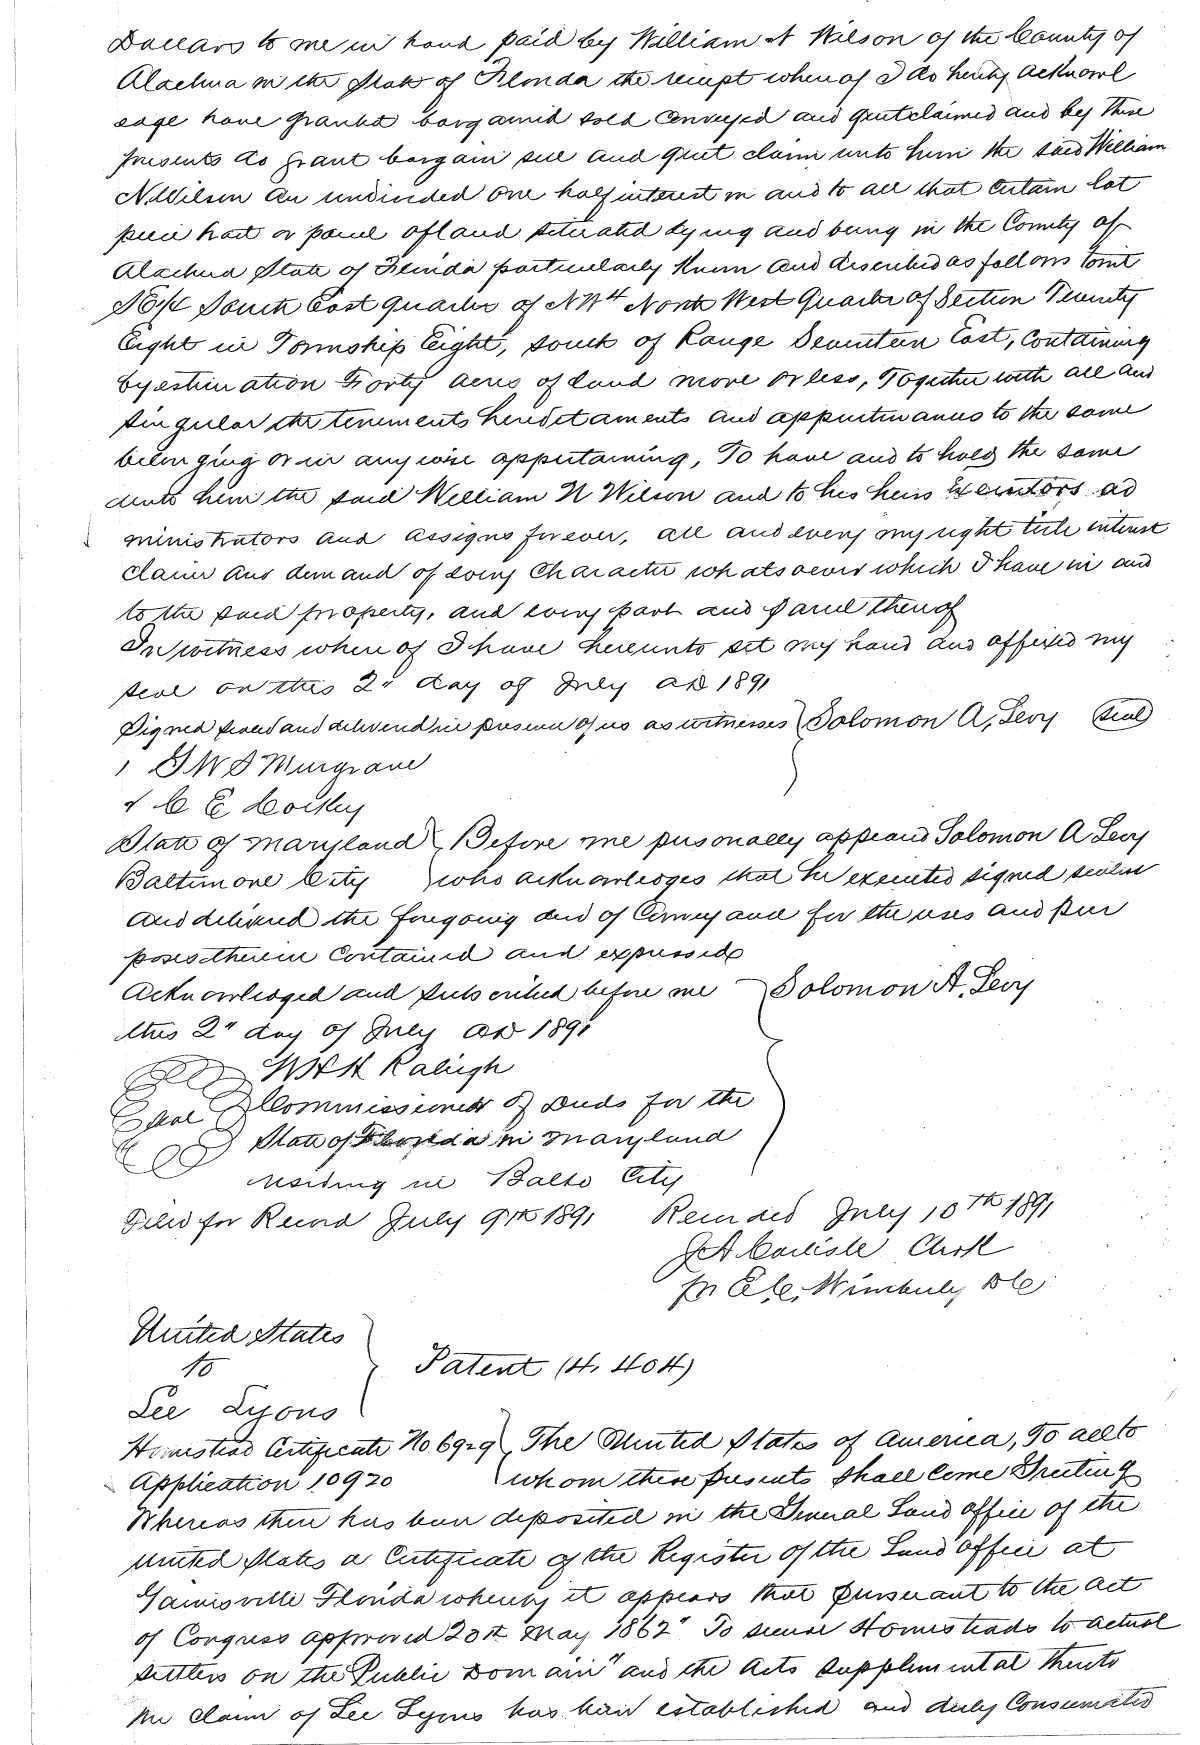 Dollars to me in hand paid by William N Wilson of the County of
Alachua in the State of Florida the receipt where of I do hereby acknowl
edge have granted bargained sold conveyed and quitclaimed and by these
presents do grant bargain sell and quit claim unto him the said William
N. Wilson an undivided one half interest in and to all that certain lot
piece tract or parcel of land situated lying and being in the County of
Alachua State of Florida particularly known and described as follows towit
SE¼ South East quarter of NW¼ North West Quarter of Section Twenty
Eight in Township Eight, south of Range Seventeen East, containing
by estimation Forty acres of land more or less, Together with all and
singular the tenements hereditaments and appurtenances to the same
belonging or in any wise appertaining, To have and to hold the same
unto him the said William N Wilson and to his heirs Executors ad
ministrators and assigns forever, all and every my right title interest
claim and demand of every Character whatsoever which I have in and
to the said property, and every part and parcel thereof
In witness where of I have hereunto set my hand and affixed my
seal on this 2" day of July AD 1891
Signed sealed and delivered in presence of us as witnesses } Solomon A. Levy (seal)
1 G W S Musgrave
& C E Corkey
State of Maryland } Before me personally appeared Solomon A Levy
Baltimore City } who acknowledges that he executed signed sealed
and delivered the foregoing deed of Conveyance for the uses and pur
poses therein contained and expressed
Acknowledged and subscribed before me } Solomon A. Levy
this 2" day of July AD 1891
W H H Raleigh
Seal Commissioner of Deeds for the
State of Florida in Maryland
residing in Balto City
Filed for Record July 9th 1891 Recorded July 10th 1891
J A Carlisle Clerk
pr E. C. Wimberly DC
United States
to
Lee Lyons
Patent (4,404)
Homestead Certificate No 6929 } The United States of America, To all to
Application 10920 } whom these presents shall come Greeting
Whereas there has been deposited in the General Land office of the
United States a Certificate of the Register of the Land Office at
Gainesville Florida whereby it appears that pursuant to the act
of Congress approved 20th May 1862 "To secure Homesteads to actual
settlers on the Public Domain" and the Acts supplemental thereto
the claim of Lee Lyons has been established and duly Consumated